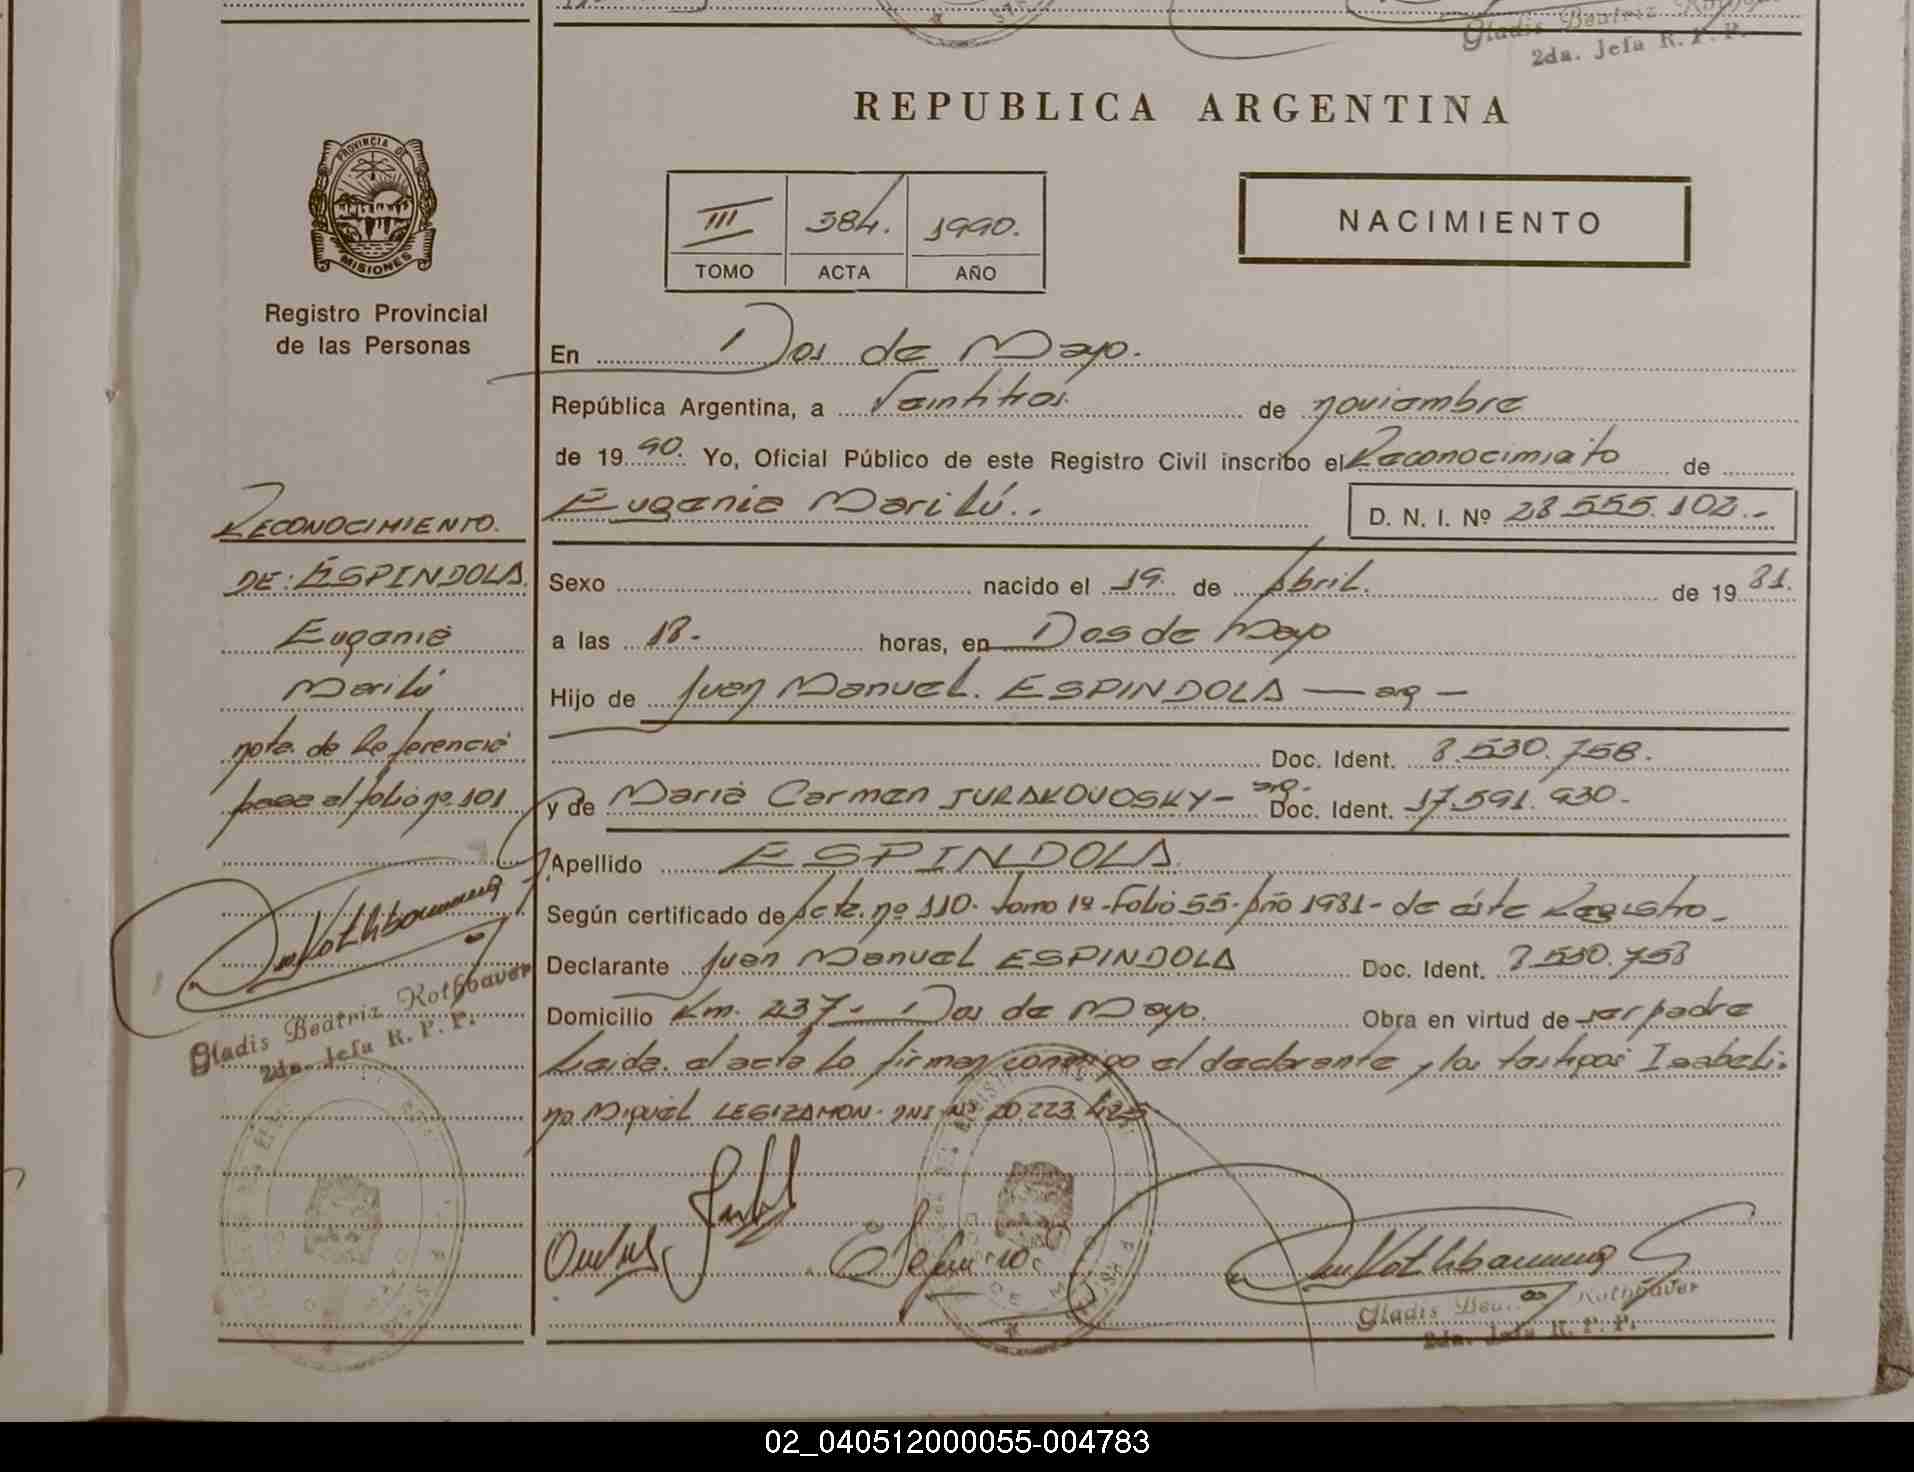 Gladis Beatriz
2da. Jefa R. P. P.
REPUBLICA ARGENTINA
PROVINCIA DE
MISIONES
Registro Provincial
de las Personas
III 384. 1990.
TOMO ACTA AÑO
NACIMIENTO
En Dos de Mayo.
República Argentina, a Veintitres de noviembre
de 1990. Yo, Oficial Público de este Registro Civil inscribo el Reconocimiato de
Eugenia Marilú.. D. N. I. Nº 28.555.102.-
Sexo nacido el 19. de Abril. de 1981.
a las 18.- horas, en Dos de Mayo
Hijo de Juan Manuel. ESPINDOLA — arg —
Doc. Ident. 8.530.758.
y de Maria Carmen JURAKOVOSKY - arg. Doc. Ident. 17.591.930.-
Apellido ESPINDOLA.
Según certificado de Acta. nº 110. tomo 1º - Folio 55 - Año 1981 - de éste Registro -
Declarante Juan Manuel ESPINDOLA Doc. Ident. 8.530.758
Domicilio Km. 237 - Dos de Mayo. Obra en virtud de ser padre
Leida. el acta lo firman conmigo el declarante y los testigos Isabeli-
no Miguel LEGIZAMON. DNI Nº 20.223.425
RECONOCIMIENTO.
DE: ESPINDOLA.
Eugenia
Marilú
nota. de Referencia
pasa al folio nº. 101
Gladis Beatriz Rothbaver
2da. Jefa R. P. P.
Gladis Rothbaver
2da. Jefa R. P. P.
02_040512000055-004783